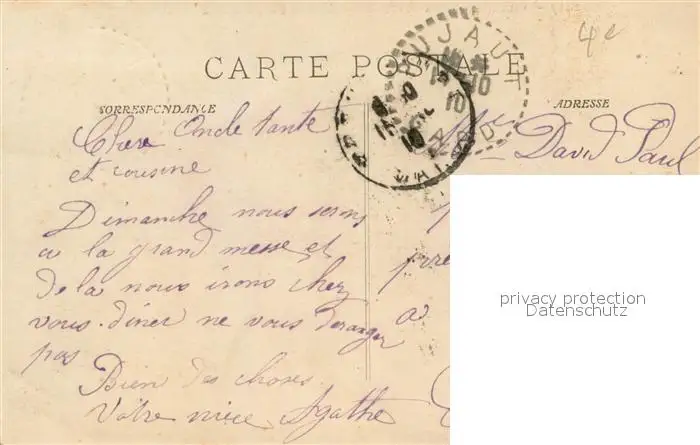 4e
CARTE POSTALE
CORRESPONDANCE
ADRESSE
Chere Oncle tante
et cousine
Dimanche nous serons
a la grand messe et
de la nous irons chez
vous diner ne vous deranger
pas
Bien des choses
Votre niece Agathe
David Paul
a
privacy protection
Datenschutz
PUJAUT
10